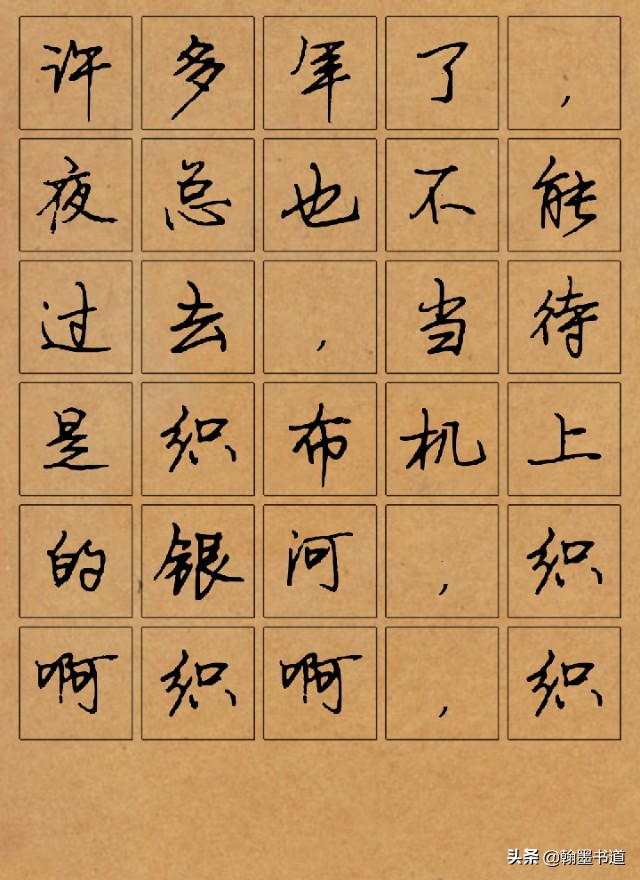 许多年了，
夜总也不能
过去，当待
是织布机上
的银河，织
啊织啊，织
头条 @翰墨书道